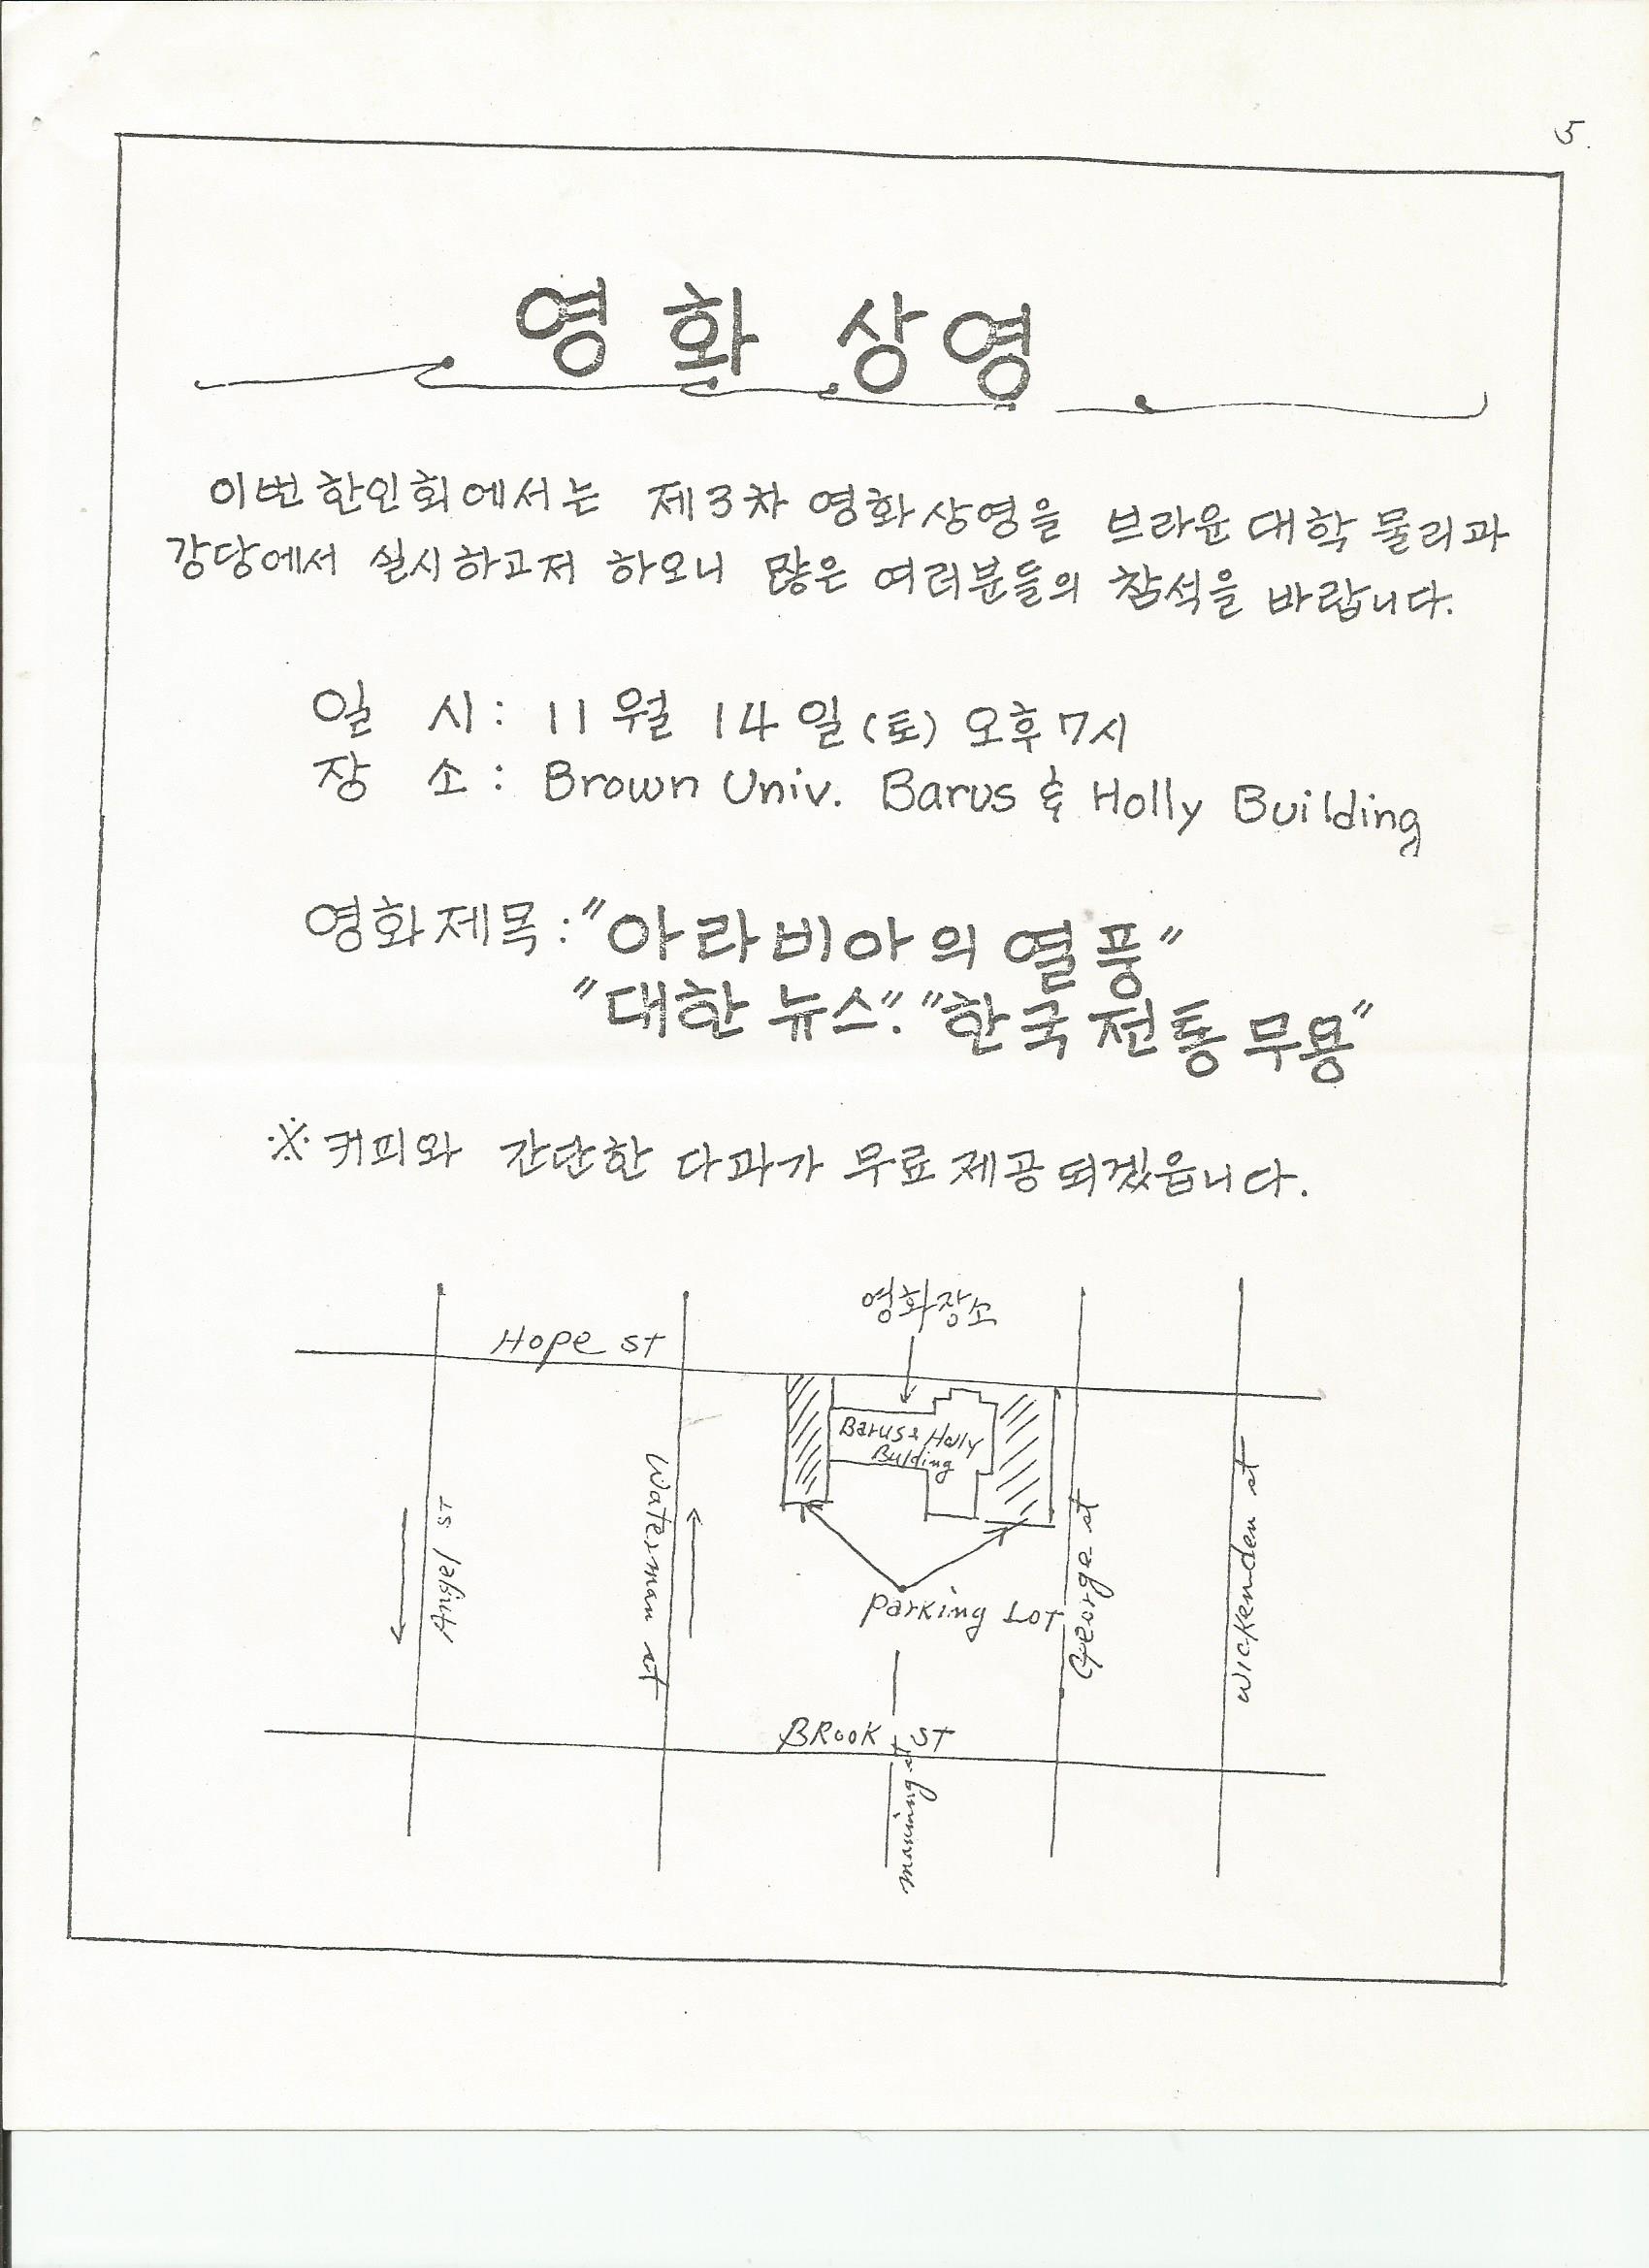 5.
영화 상영
이번 한인회에서는 제3차 영화상영을 브라운 대학 물리과
강당에서 실시하고저 하오니 많은 여러분들의 참석을 바랍니다.
일 시: 11월 14일(토) 오후7시
장 소: Brown Univ. Barus & Holly Building
영화제목: "아라비아의 열풍"
"대한 뉴스". "한국 전통 무용"
※ 커피와 간단한 다과가 무료제공되겠읍니다.
영화장소
Hope ST
Barus & Holly
Bulding
Angel ST
Waterman st
George st
Wickenden st
Parking Lot
BROOK ST
manning st